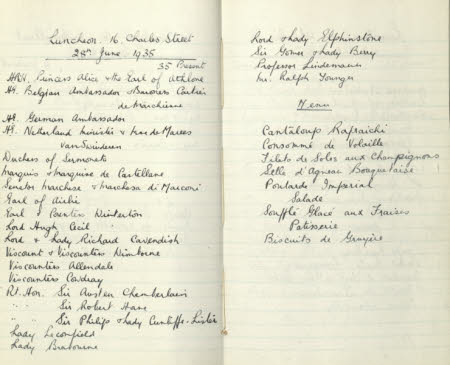 Luncheon 16, Charles Street
28th June 1935
35 Present
HRH. Princess Alice & the Earl of Athlone
HE. Belgian Ambassador & Baroness Cartier
de Marchienne
HE. German Ambassador
HE. Netherland Minister & Mme de Marees
van Swinderen
Duchess of Sermoneta
Marquis & Marquise de Castellane
Senator Marchese & Marchesa di Marconi
Earl of Airlie
Earl & Countess Winterton
Lord Hugh Cecil
Lord & Lady Richard Cavendish
Viscount & Viscountess Wimborne
Viscountess Allendale
Viscountess Cowdray
Rt. Hon. Sir Austen Chamberlain
" " Sir Robert Horne
" " Sir Philip & Lady Cunliffe-Lister
Lady Leconfield
Lady Brabourne
Lord & Lady Elphinstone
Sir Gomer & Lady Berry
Professor Lindemann
Mr. Ralph Younger
Menu
Cantaloup Rafraichi
Consommé de Volaille
Filets de Soles aux Champignons
Selle d'Agneau Bouquetaise
Poularde Imperial
Salade
Soufflé Glacé aux Fraises
Patisserie
Biscuits de Gruyère